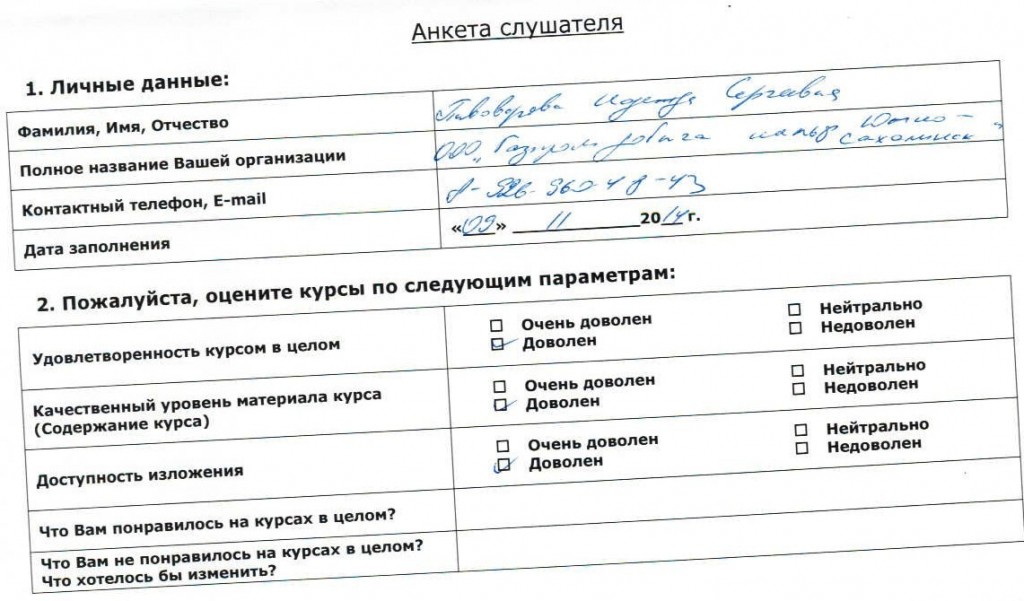 Анкета слушателя
1. Личные данные:
Фамилия, Имя, Отчество
Пивоварова Надежда Сергеевна
Полное название Вашей организации
ООО "Газпром добыча Южно-
Сахалинск"
Контактный телефон, E-mail
8-926-960-48-43
Дата заполнения
«09» 11 2014г.
2. Пожалуйста, оцените курсы по следующим параметрам:
Удовлетворенность курсом в целом
Очень доволен Нейтрально
Доволен Недоволен
Качественный уровень материала курса
(Содержание курса)
Очень доволен Нейтрально
Доволен Недоволен
Доступность изложения
Очень доволен Нейтрально
Доволен Недоволен
Что Вам понравилось на курсах в целом?
Что Вам не понравилось на курсах в целом?
Что хотелось бы изменить?